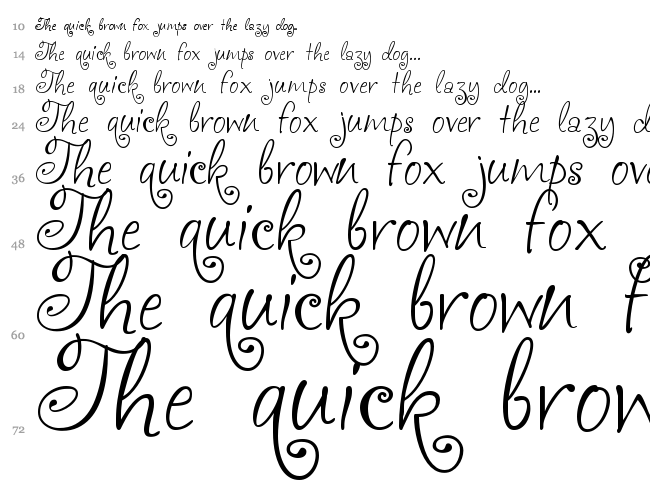 10 The quick brown fox jumps over the lazy dog.
14 The quick brown fox jumps over the lazy dog...
18 The quick brown fox jumps over the lazy dog...
24 The quick brown fox jumps over the lazy d
36 The quick brown fox jumps ov
48 The quick brown fox
60 The quick brown f
72 The quick brow